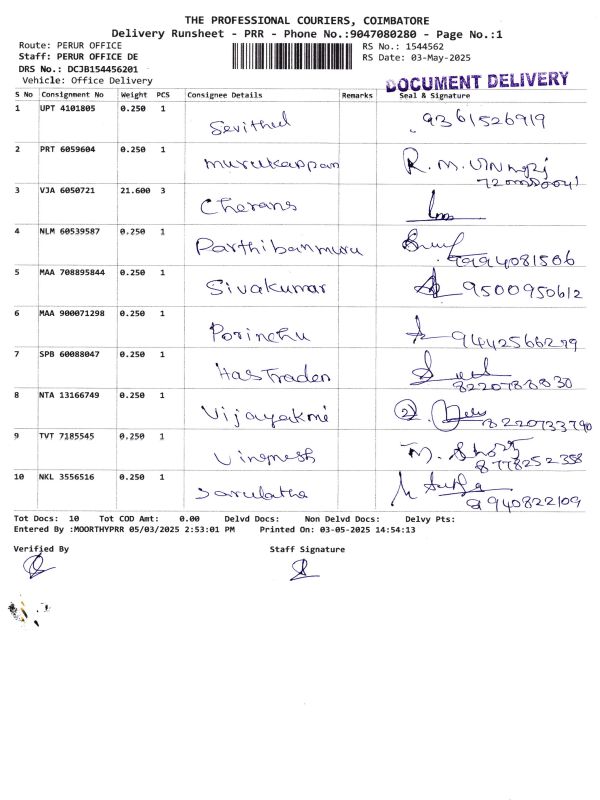 THE PROFESSIONAL COURIERS, COIMBATORE
Delivery Runsheet - PRR - Phone No.:9047080280 - Page No.:1
Route: PERUR OFFICE RS No.: 1544562
Staff: PERUR OFFICE DE RS Date: 03-May-2025
DRS No.: DCJB154456201
Vehicle: Office Delivery
DOCUMENT DELIVERY
S No Consignment No Weight PCS Consignee Details Remarks Seal & Signature
1 UPT 4101805 0.250 1 Sevithul 9361526919
2 PRT 6059604 0.250 1 Murukappan R.M.
3 VJA 6050721 21.600 3 Cherans
4 NLM 60539587 0.250 1 Parthibanmuru 9994081506
5 MAA 708895844 0.250 1 Sivakumar 9500950612
6 MAA 900071298 0.250 1 Porinchu 9442566279
7 SPB 60088047 0.250 1 Has Traden
8 NTA 13166749 0.250 1 Vijayakmi 8220733790
9 TVT 7185545 0.250 1 Vinmesh M. 8778252358
10 NKL 3556516 0.250 1 Sarulatha 8940822109
Tot Docs: 10 Tot COD Amt: 0.00 Delvd Docs: Non Delvd Docs: Delvy Pts:
Entered By :MOORTHYPRR 05/03/2025 2:53:01 PM Printed On: 03-05-2025 14:54:13
Verified By Staff Signature